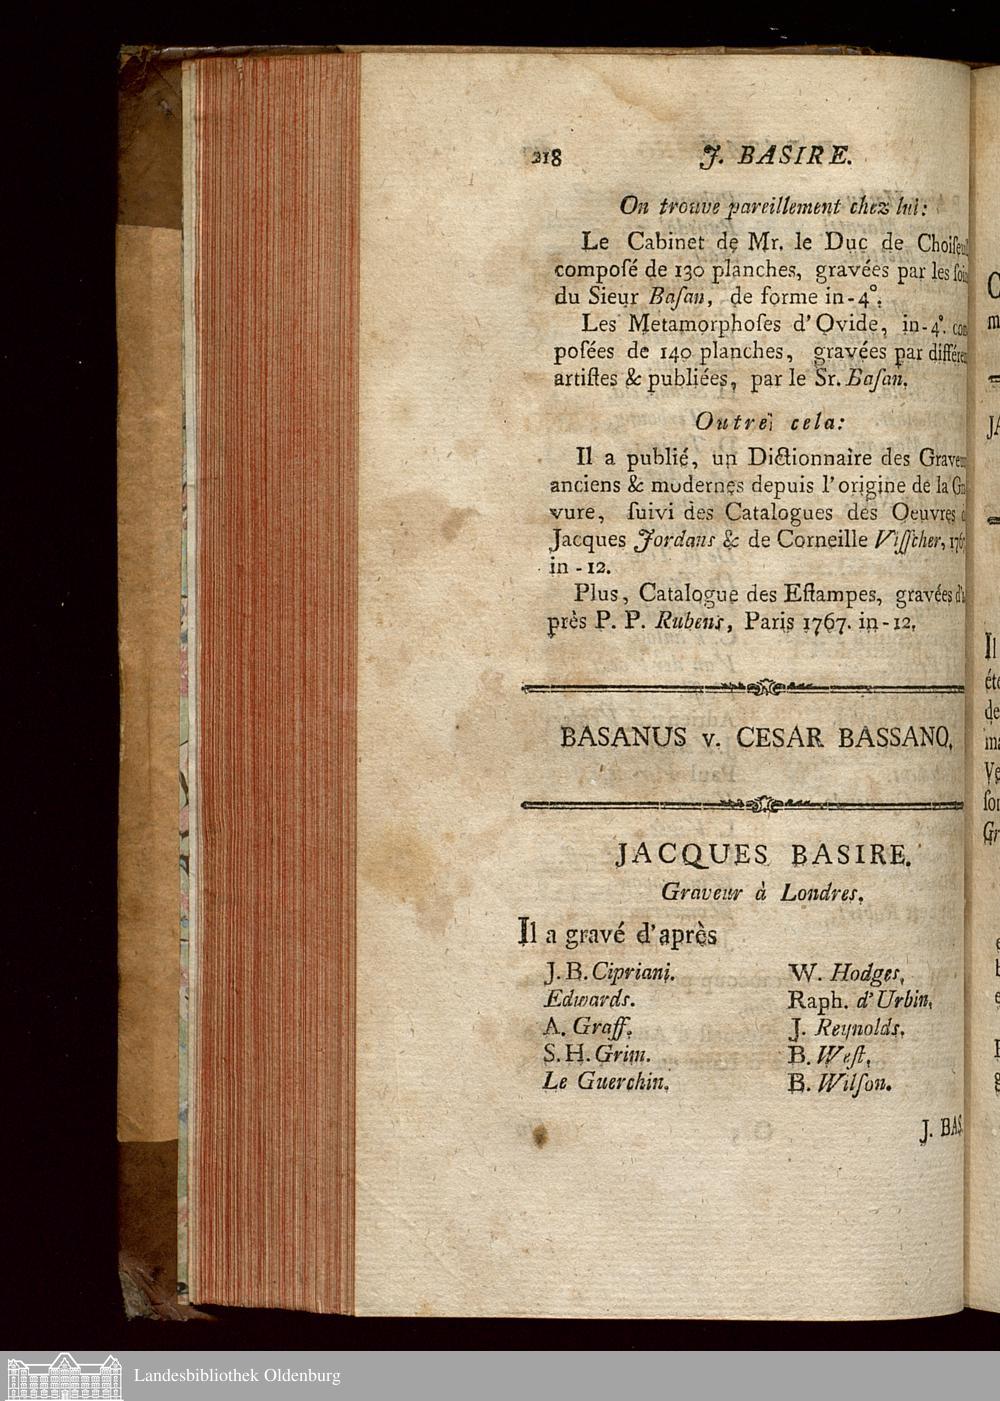 218 J. BASIRE.
On trouve pareillement chez lui:
Le Cabinet de Mr. le Duc de Choiſeul
compoſé de 130 planches, gravées par les
du Sieur Baſan, de forme in-4°.
Les Metamorphoſes d'Ovide, in-4°.
poſées de 140 planches, gravées par
artiſtes & publiées, par le Sr. Baſan.
Outre cela:
Il a publié, un Dictionnaire des
anciens & modernes depuis l'origine de la
vure, ſuivi des Catalogues des Oeuvres
Jacques Jordans & de Corneille Viſſcher,
in-12.
Plus, Catalogue des Eſtampes, gravées
près P. P. Rubens, Paris 1767. in-12.
BASANUS v. CESAR BASSANO.
JACQUES BASIRE.
Graveur à Londres.
Il a gravé d'après
J. B. Cipriani.
Edwards.
A. Graff.
S. H. Grim.
Le Guerchin.
W. Hodges.
Raph. d'Urbin.
J. Reynolds.
B. Weſt.
B. Wilſon.
J. BAS
Il
Landesbibliothek Oldenburg